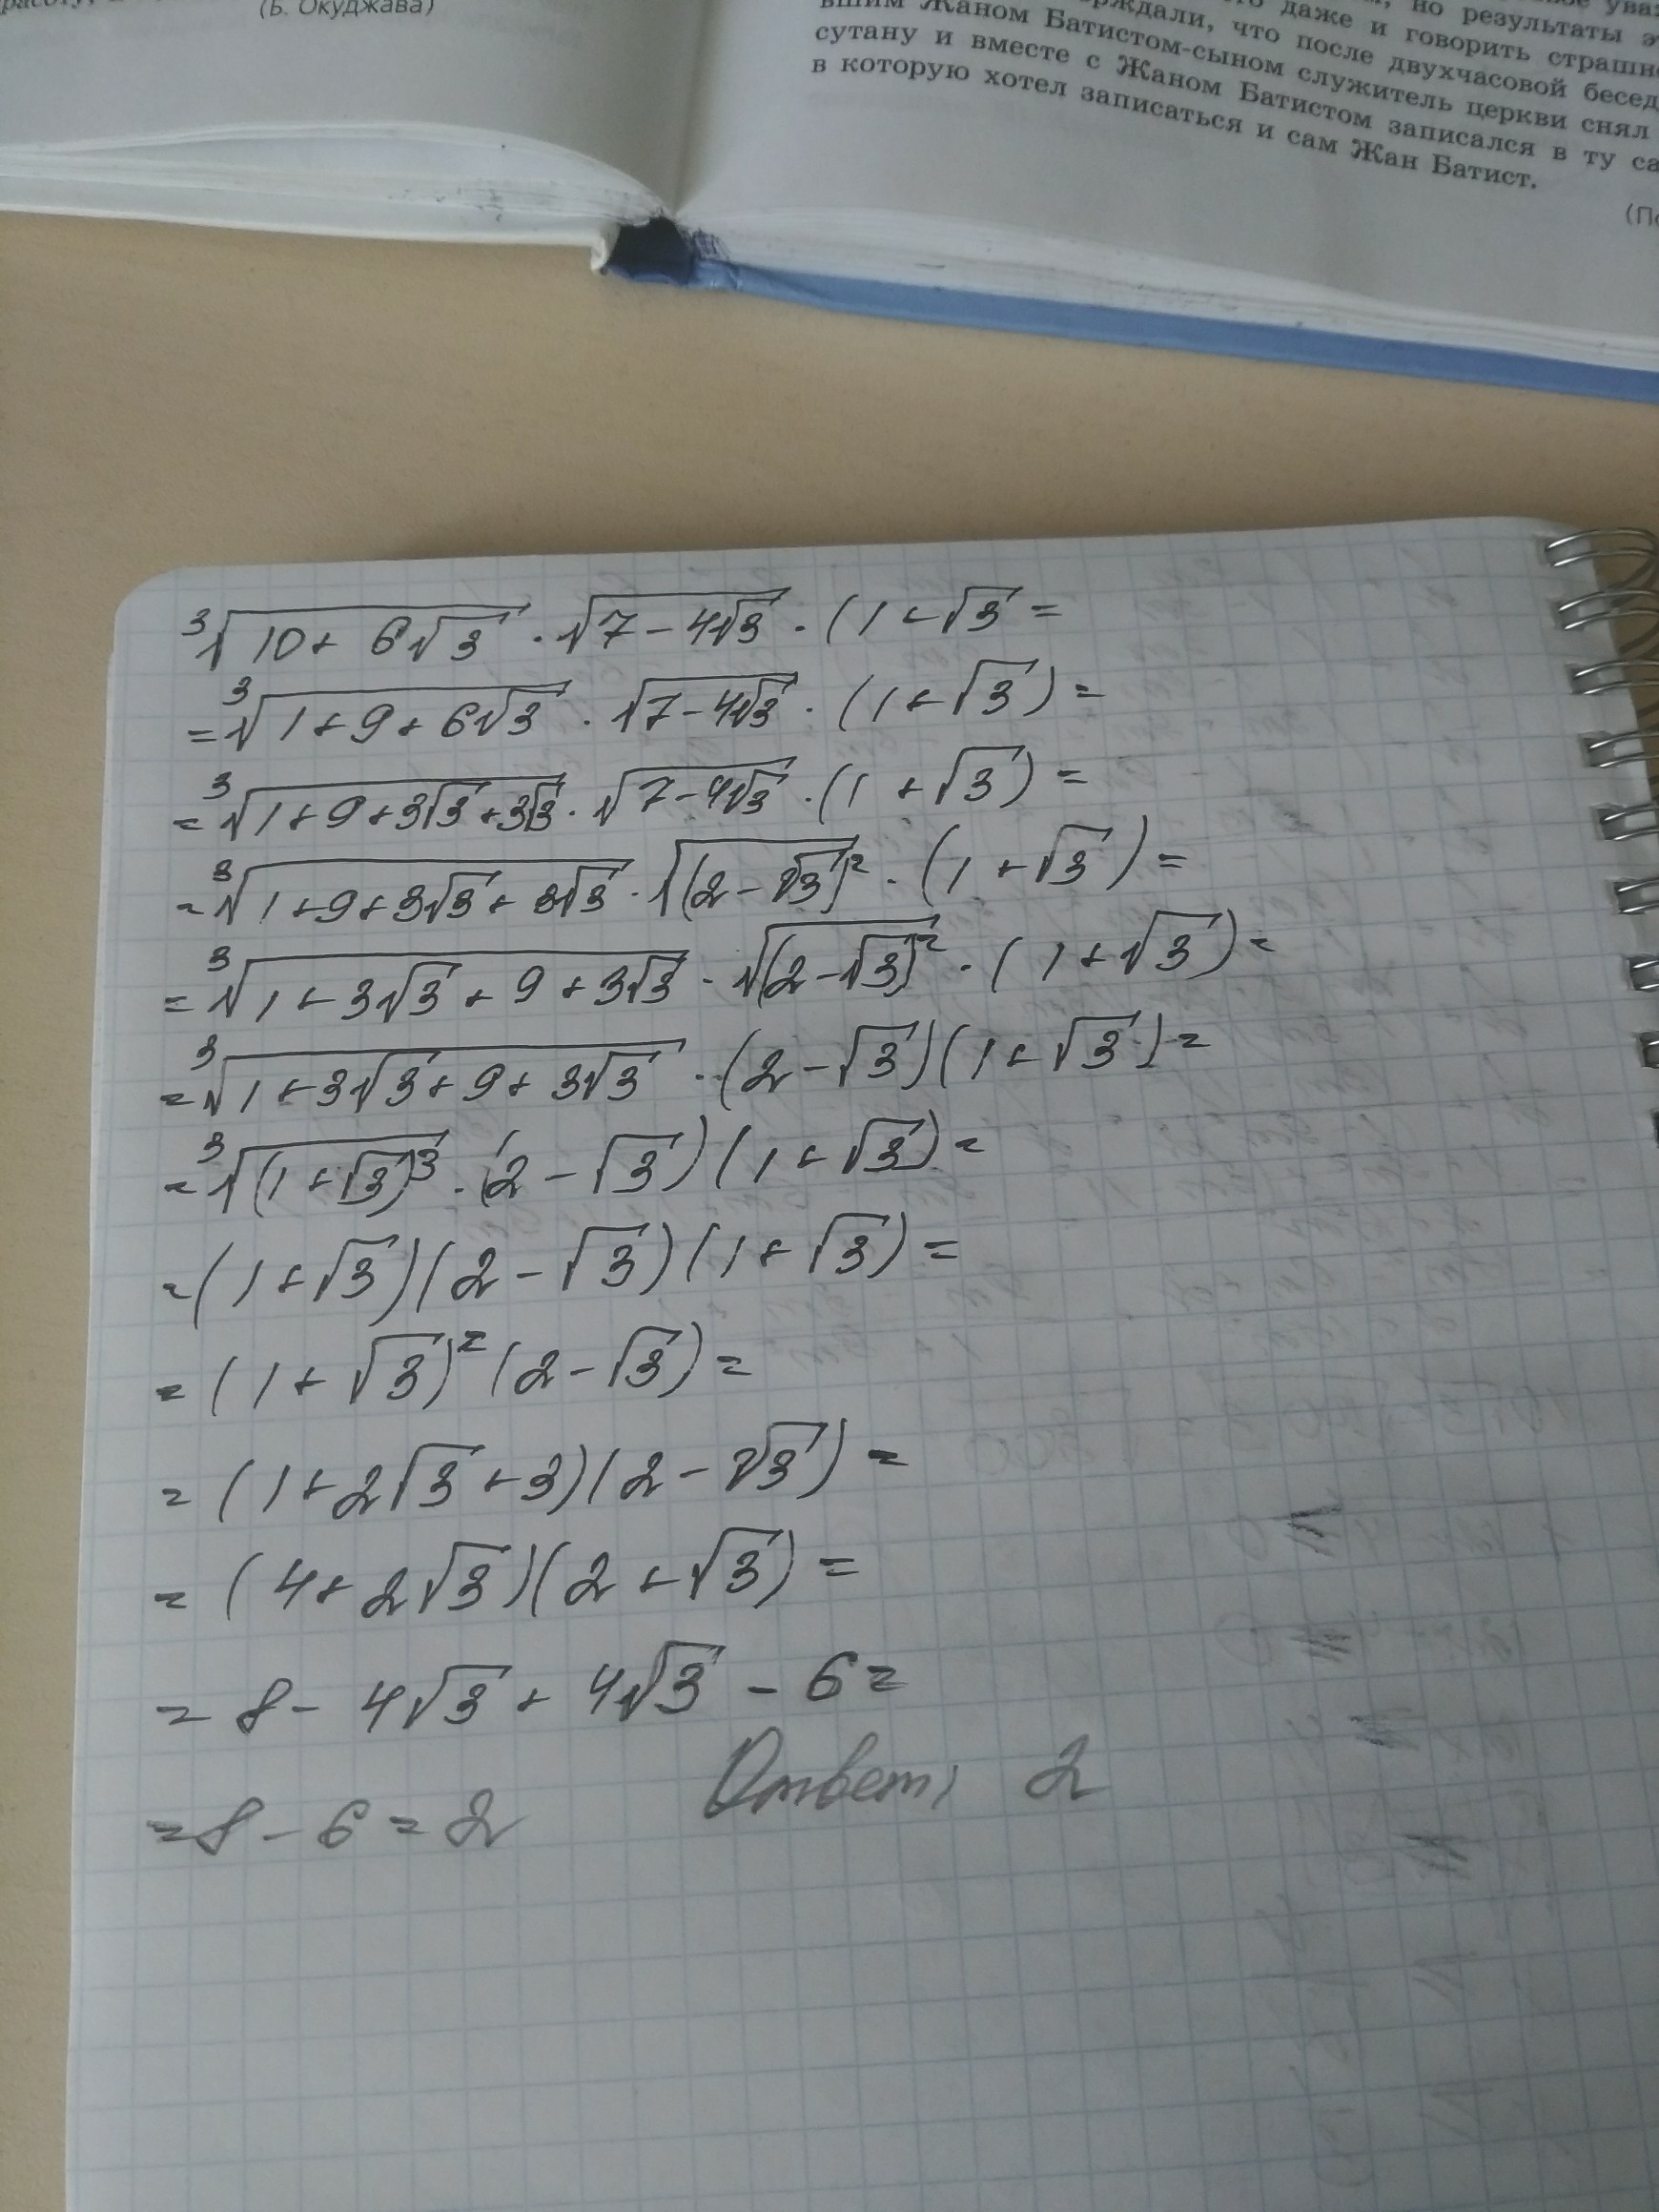 (Б. Окуджава)
но результаты
даже и говорить страшно
что после двухчасовой
вшим Жаном Батистом-сыном служитель церкви снял
сутану и вместе с Жаном Батистом записался в ту
в которую хотел записаться и сам Жан Батист.
∛(10+6√3) · √(7-4√3) · (1+√3 =
= ∛(1+9+6√3) · √(7-4√3) · (1+√3) =
= ∛(1+9+3√3+3√3) · √(7-4√3) · (1+√3) =
= ∛(1+9+3√3+3√3) · √((2-√3)²) · (1+√3) =
= ∛(1+3√3+9+3√3) · √((2-√3)²) · (1+√3) =
= ∛(1+3√3+9+3√3) · (2-√3)(1+√3) =
= ∛((1+√3)³) · (2-√3)(1+√3) =
= (1+√3)(2-√3)(1+√3) =
= (1+√3)²(2-√3) =
= (1+2√3+3)(2-√3) =
= (4+2√3)(2+√3) =
= 8-4√3+4√3-6 =
= 8-6 = 2 Ответ: 2